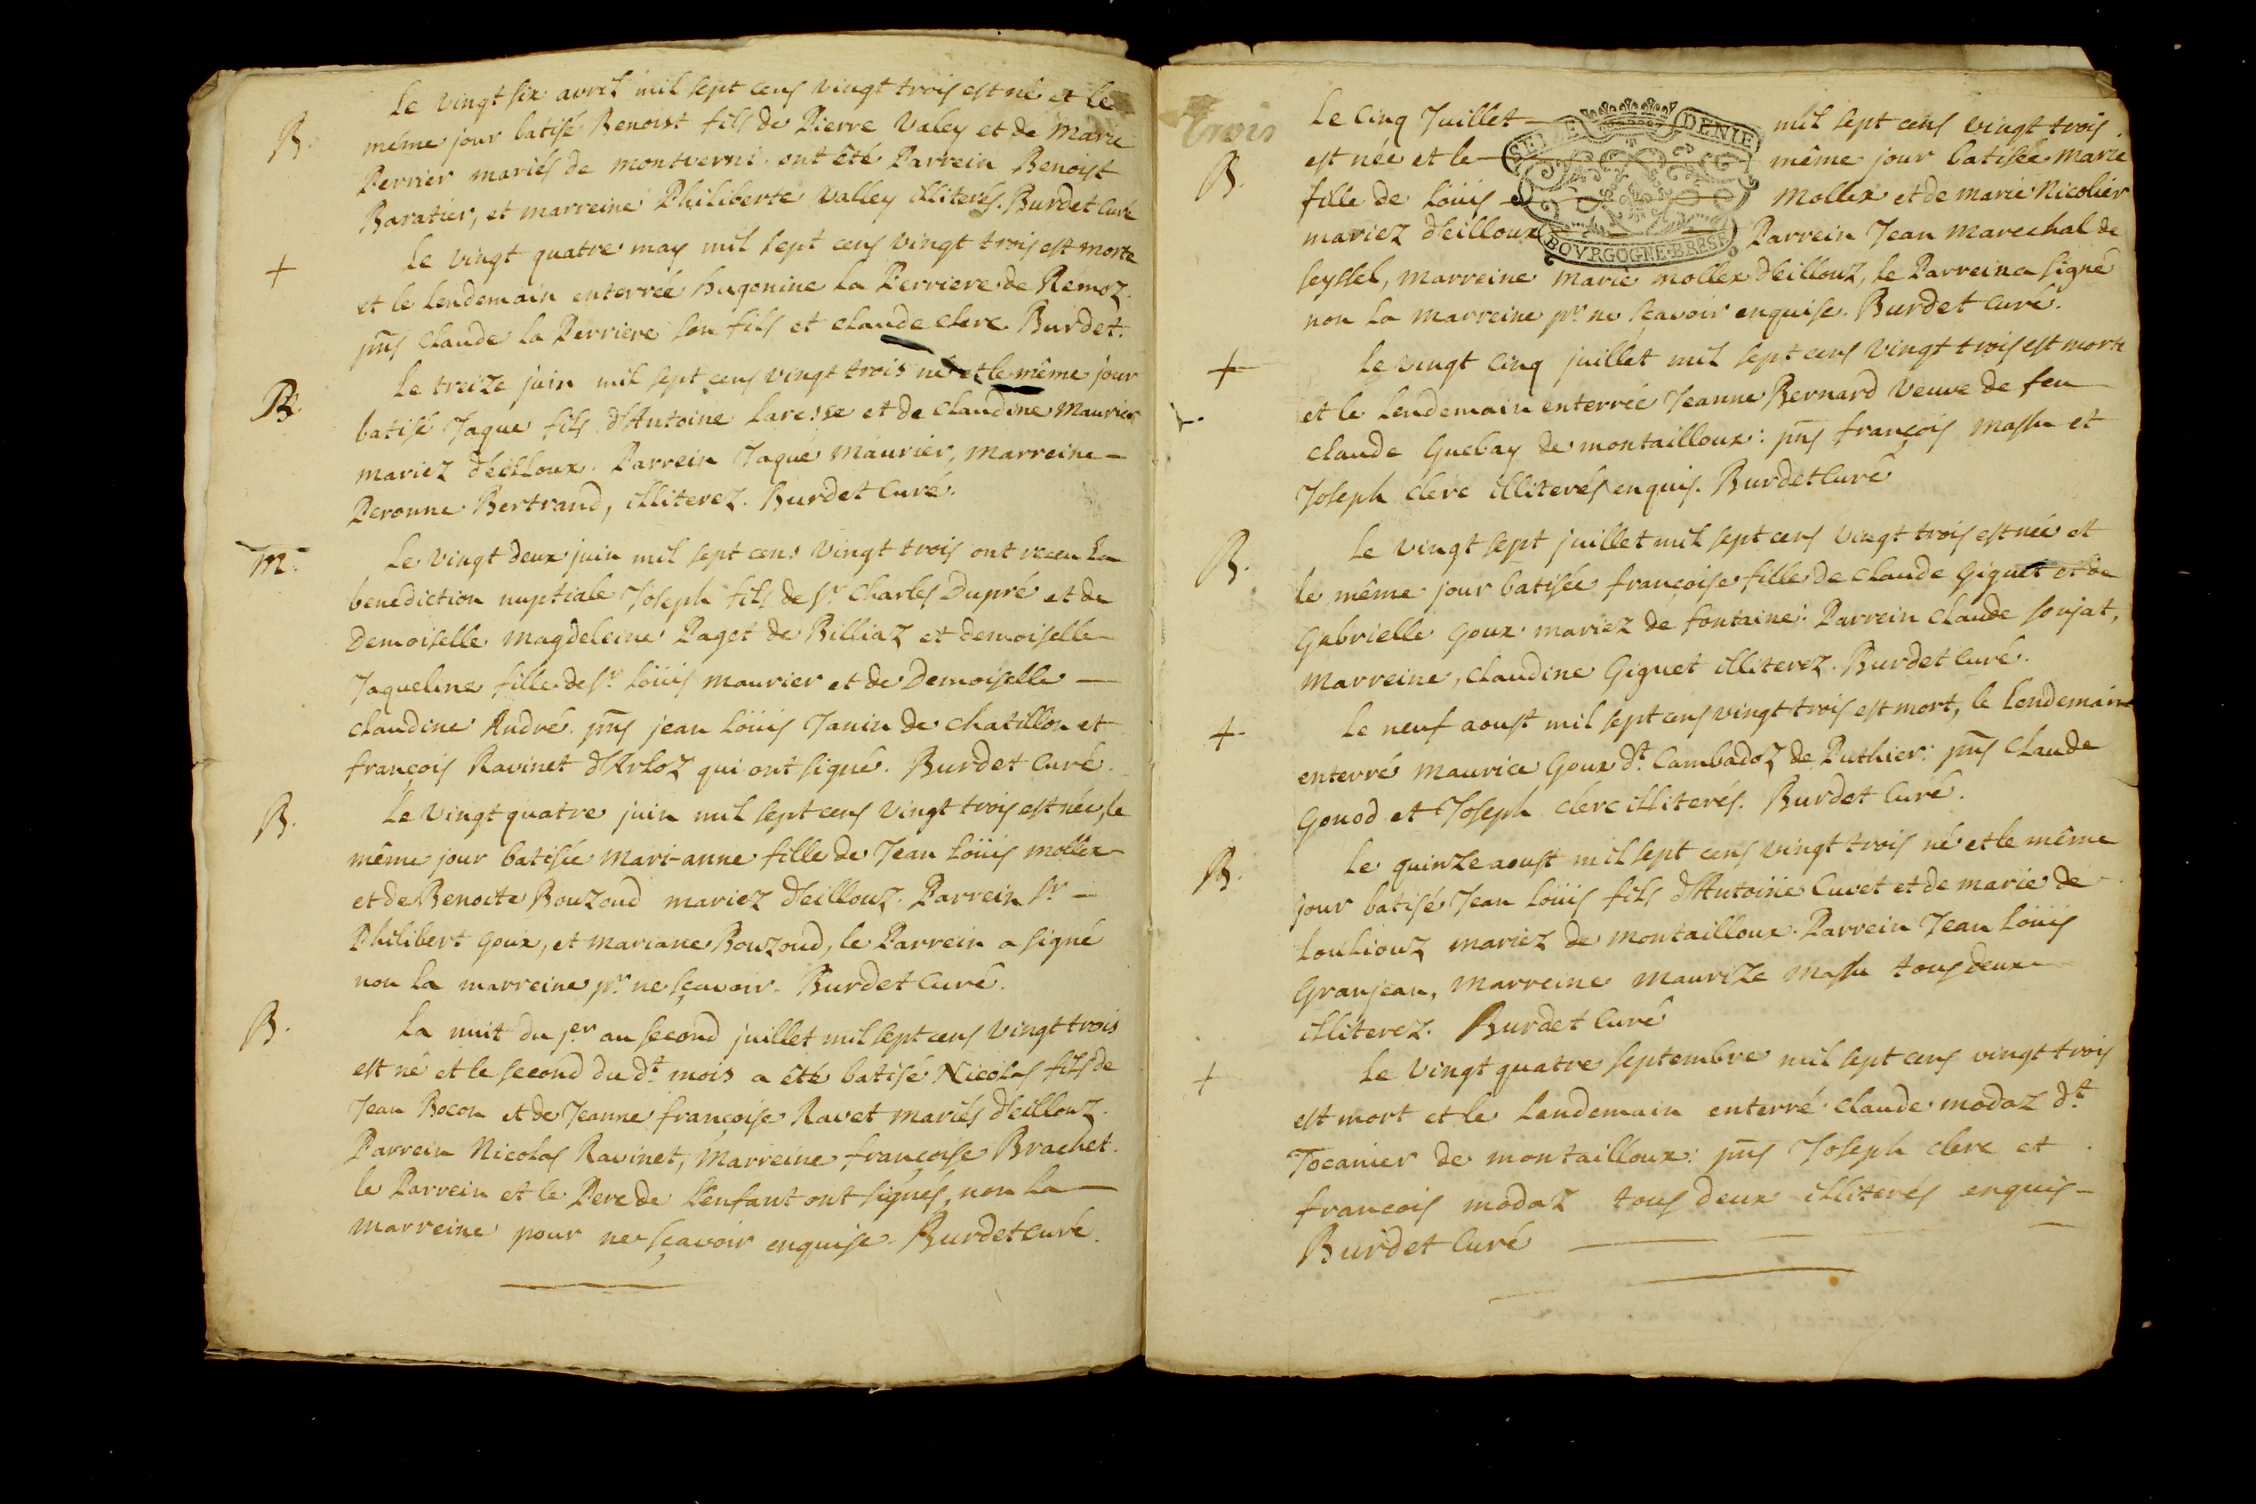 Le vingt six avril mil sept cens vingt trois est né et le
B. même jour batisé Benoist fils de Pierre Valey et de Marie
Perrier mariés de montverni. ont été Parrein Benoist
Baratier, et marreine Philiberte Valley illiterés. Burdet Curé
+ Le vingt quatre may mil sept cens vingt trois est morte
et le lendemain enterrée hugonine La Perriere de Remoz.
pñs Claude la Perriere son fils et claude clerc. Burdet.
Le treize juin mil sept cens vingt trois né et le même jour
B. batisé Jaque fils d'Antoine Laresse et de claudine Maurier
mariez d'eilloux. Parrein Jaque Maurier, marreine
Peronne Bertrand, illiterez. Burdet Curé.
M. Le vingt deux juin mil sept cens vingt trois ont receu la
benediction nuptiale Joseph fils de Sr. Charles Dupré et de
Demoiselle Magdeleine Paget de Billiaz et demoiselle
Jaqueline fille de Sr. Loüis Maurier et de Demoiselle
claudine André. pñs jean Loüis Janin de chatillon et
françois Ravinet d'Arloz qui ont signé. Burdet Curé.
B. Le vingt quatre juin mil sept cens vingt trois est née, le
même jour batisée Mari-anne fille de Jean Loüis mollex
et de Benoite Bouzoud mariez d'eillouz. Parrein Sr
Philibert Goux, et Mariane Bouzoud, le Parrein a signé
non la marreine pr. ne sçavoir. Burdet Curé.
B. La nuit du jer au second juillet mil sept cens vingt trois
est né et le second du dt. mois a été batisé Nicolas fils de
Jean Bocon et de Jeanne françoise Ravet mariés d'eillouz.
Parrein Nicolas Ravinet, Marreine françoise Brachet.
le Parrein et le Pere de L'enfant ont signés, non la
marreine pour ne sçavoir enquise. Burdet Curé.
trois
Le Cinq Juillet mil sept cens vingt trois.
B. est née et le même jour batisée Marie
fille de Loüis Mollex et de Marie Nicolier
mariez d'eilloux Parrein Jean Marechal de
SEIZE DENIE
BOVRGOGNE·BRESSE
seyssel, Marreine Marie mollex d'eillouz, le Parrein a signé
non la marreine pr. ne sçavoir enquise. Burdet Curé.
+ Le vingt cinq juillet mil sept cens vingt trois est morte
et le lendemain enterrée Jeanne Bernard veuve de feu
claude Guebay de montailloux: pñs françois Massu et
Joseph clerc illiterés enquis. Burdet Curé
B. Le vingt sept juillet mil sept cens vingt trois est née et
le même jour batisée françoise fille de claude Giguet et de
Gabrielle Goux mariez de fontaine: Parrein claude sonjat,
Marreine, claudine Giguet illiterez. Burdet Curé.
+ Le neuf aoust mil sept cens vingt trois est mort, le lendemain
enterré Maurice Goux dt. Cambadoz de Puthier: pñs Claude
Gonod et Joseph clerc illiterés. Burdet Curé.
B. Le quinze aoust mil sept cens vingt trois né et le même
jour batisé Jean Loüis fils d'Antoine Cuvet et de marie de
Louliouz mariez de montailloux. Parrein Jean Loüis
Granjean, Marreine Maurize Massu tous deux
illiterez. Burdet Curé
+ Le vingt quatre septembre mil sept cens vingt trois
est mort et le Lendemain enterré claude modaz dt.
Tocanier de montailloux: pñs Joseph clerc et
françois modaz tous deux illiterés enquis
Burdet Curé